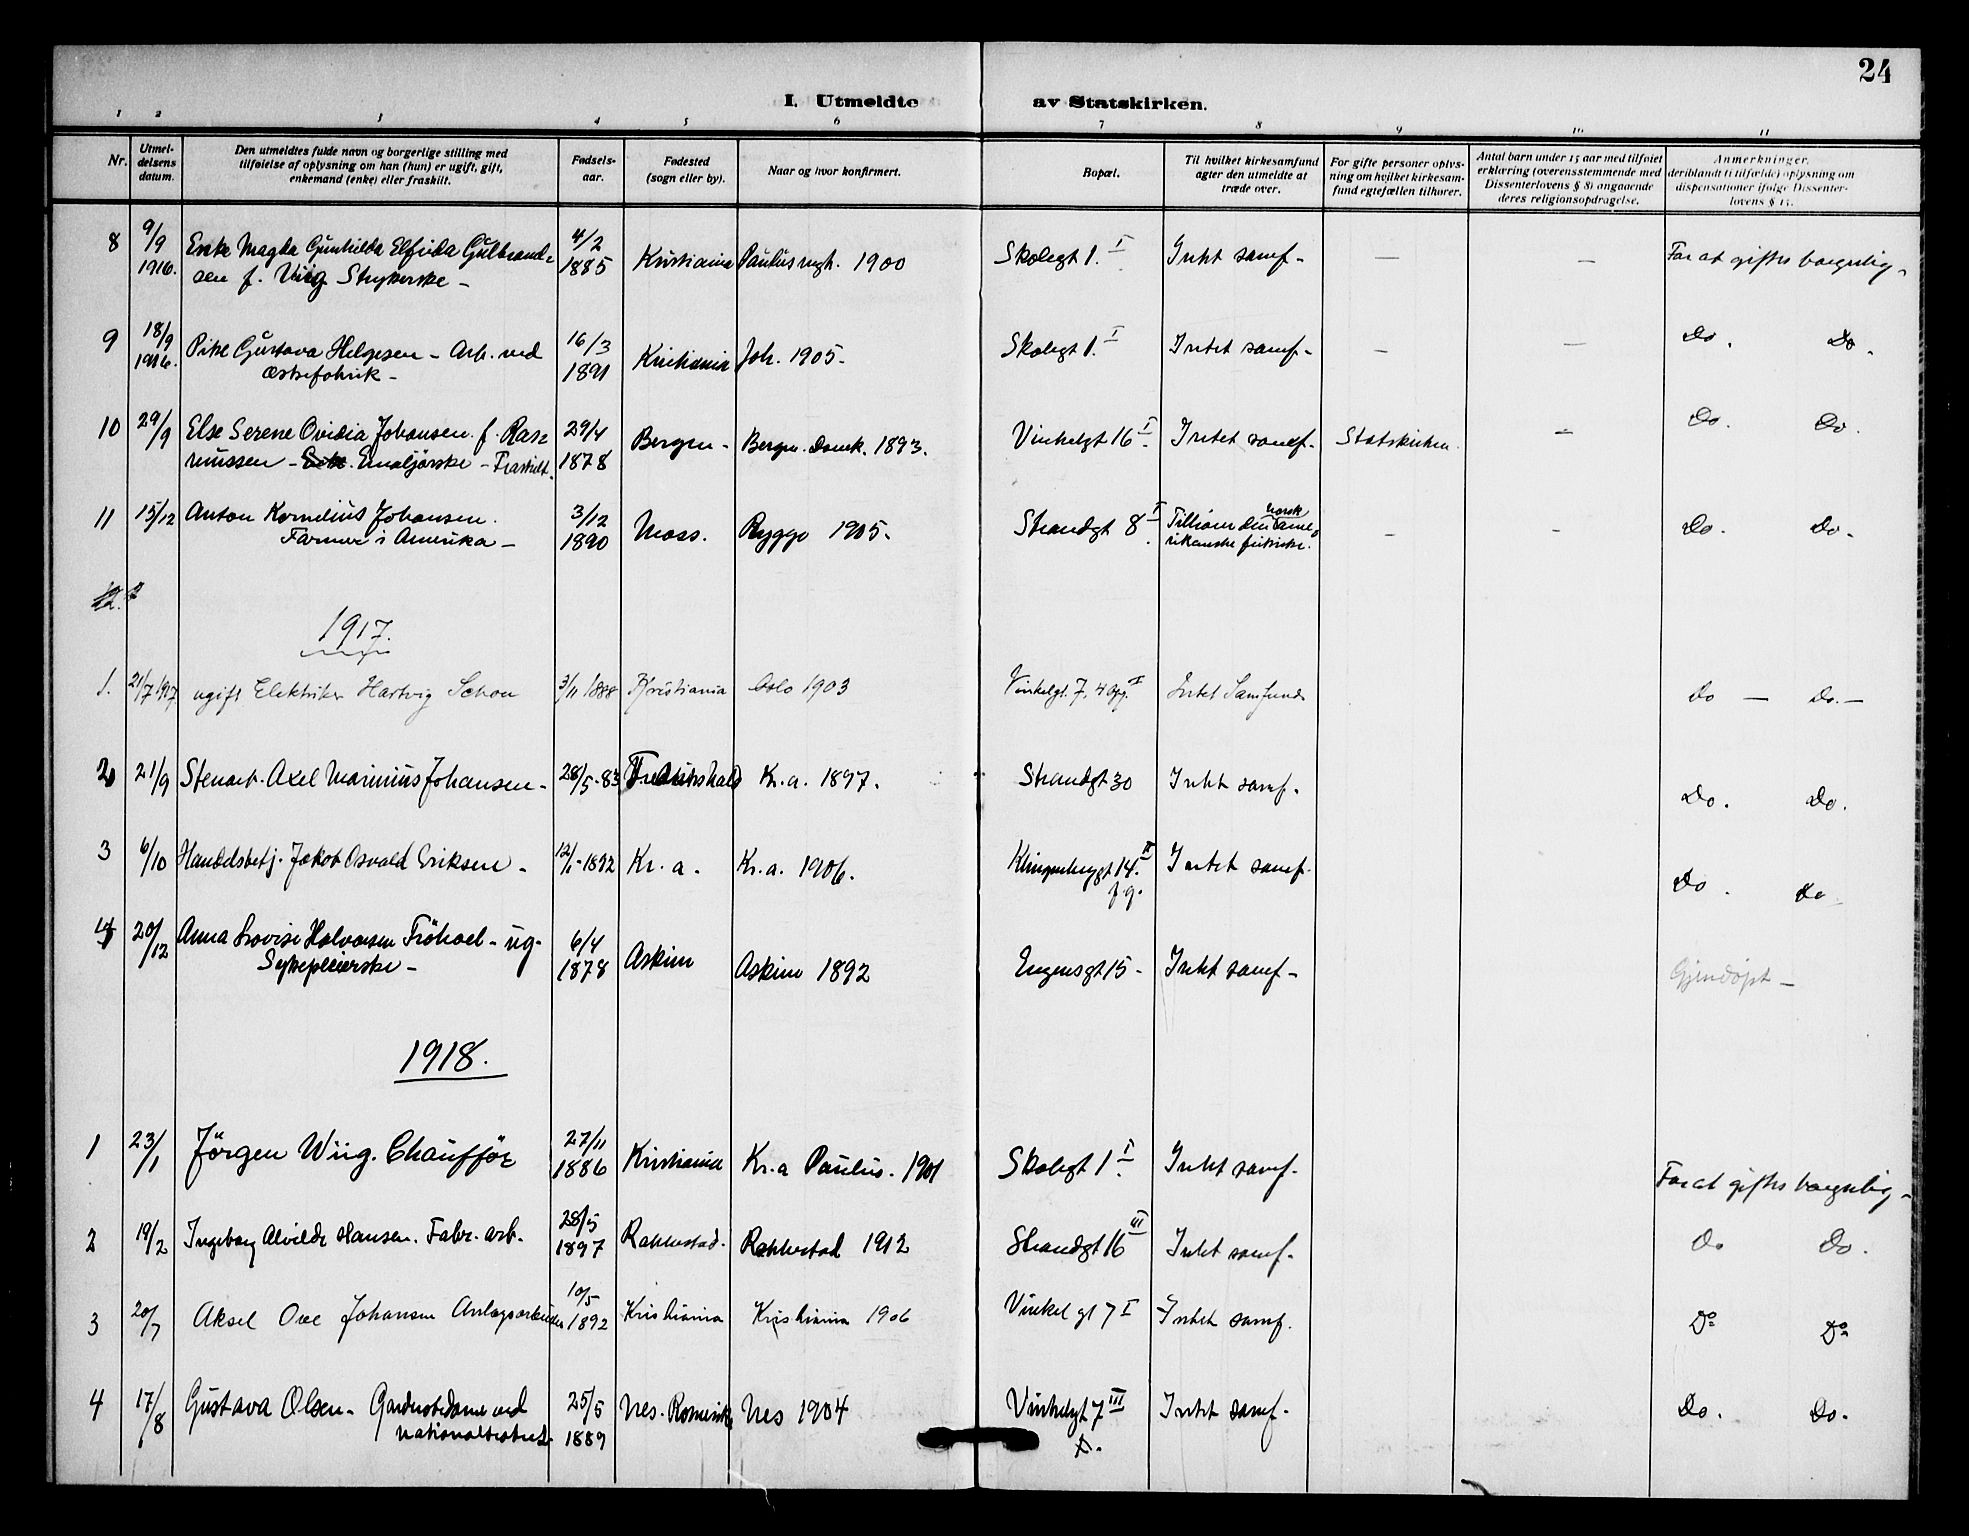 24
I. Utmeldte av Statskirken.
1 2 3 4 5 6 7 8 9 10 11
Nr.
Utmel-
delsens
datum.
Den utmeldtes fulde navn og borgerlige stilling med
tilføielse af oplysning om han (hun) er ugift, gift,
enkemand (enke) eller fraskilt.
Fødsels-
aar.
Fødested
(sogn eller by).
Naar og hvor konfirmert.
Bopæl.
Til hvilket kirkesamfund
agter den utmeldte at
træde over.
For gifte personer oplys-
ning om hvilket kirkesam-
fund egtefællen tilhører.
Antal barn under 15 aar med tilføiet
erklæring (overensstemmende med
Dissenterlovens § 8) angaaende
deres religionsopdragelse.
Anmerkninger,
deriblandt (i tilfælde) oplysning om
dispensationer ifølge Dissenter-
lovens § 15.
8 9/9 1916. Enke Magda Gunhilda Elfrida Gulbrand- 4/2 1885 Kristiania Paulus mgh. 1900 Skolegt 1. I Intet samf - — — For at giftes borgerlig -
sen f. Wiig Strykerske -
9 18/9 1916. Pike Gustava Helgesen - Arb. ved 16/3 1891 Kristiania Joh. 1905. Skolegt 1. I Intet samf - — — Do. Do.
æskefabrik -
10 29/9 Else Serene Ovidia Johansen f. Ras- 29/4 1878 Bergen - Bergen. Domk. 1893. Vinkelgt 16 I Intet samf - Statskirken. — Do. Do.
mussen - Emaljørske - Fraskilt.
11 15/12 Anton Kornelius Johansen. 3/12 1890 Moss. Rygge 1905. Strandgt 8 I Tilhører den norsk ame- — — Do. Do.
Farmer i Amerika - rikanske frikirke.
12.
1917.
1. 21/7 1917 ugift Elektriker Hartvig Schou 3/11 1888 Kristiania Oslo 1903 Vinkelgt. 7. 4 opg. I Intet Samfund Do — Do. —
2 21/9 Stenarb. Axel Marinius Johansen - 28/5-83 Fredrikshald Kr.a. 1897. Strandgt 30 Intet samf. Do. Do.
3 6/10 Handelsbetj. Jakob Osvald Eriksen - 12/1-1892 Kr.a. Kr.a. 1906. Klingenbergt 14. II Intet samf. Do. Do.
f.g.
4 20/12 Anna Lovise Halvorsen Fröhoel - ug- 6/4 1878 Askim Askim 1892 Eugensgt 15 - Intet samf - Gjendøpt -
Sykepleierske -
1918.
1 23/1 Jörgen Wiig. Chauffør 27/11 1886 Kristiania Kr.a Paulus. 1901 Skolegt 1 I. Intet samf. For at giftes borgerlig -
2 19/2 Ingeborg Alvilde Hansen. Fabr. arb. 28/5 1897 Rakkestad. Rakkestad 1912 Strandgt 16 III Intet samf. Do Do.
3 20/7 Aksel Ove Johansen Anlægsarbeider 10/5 1892 Kristiania Kristiania 1906 Vinkel gt 7 I Intet samf. Do Do
4 17/8 Gustava Olsen - Garderobedame ved 25/5 1889 Nes. Romerike Nes 1904 Vinkelgt 7 III Intet samf. Do. Do.
Nationalteatret.